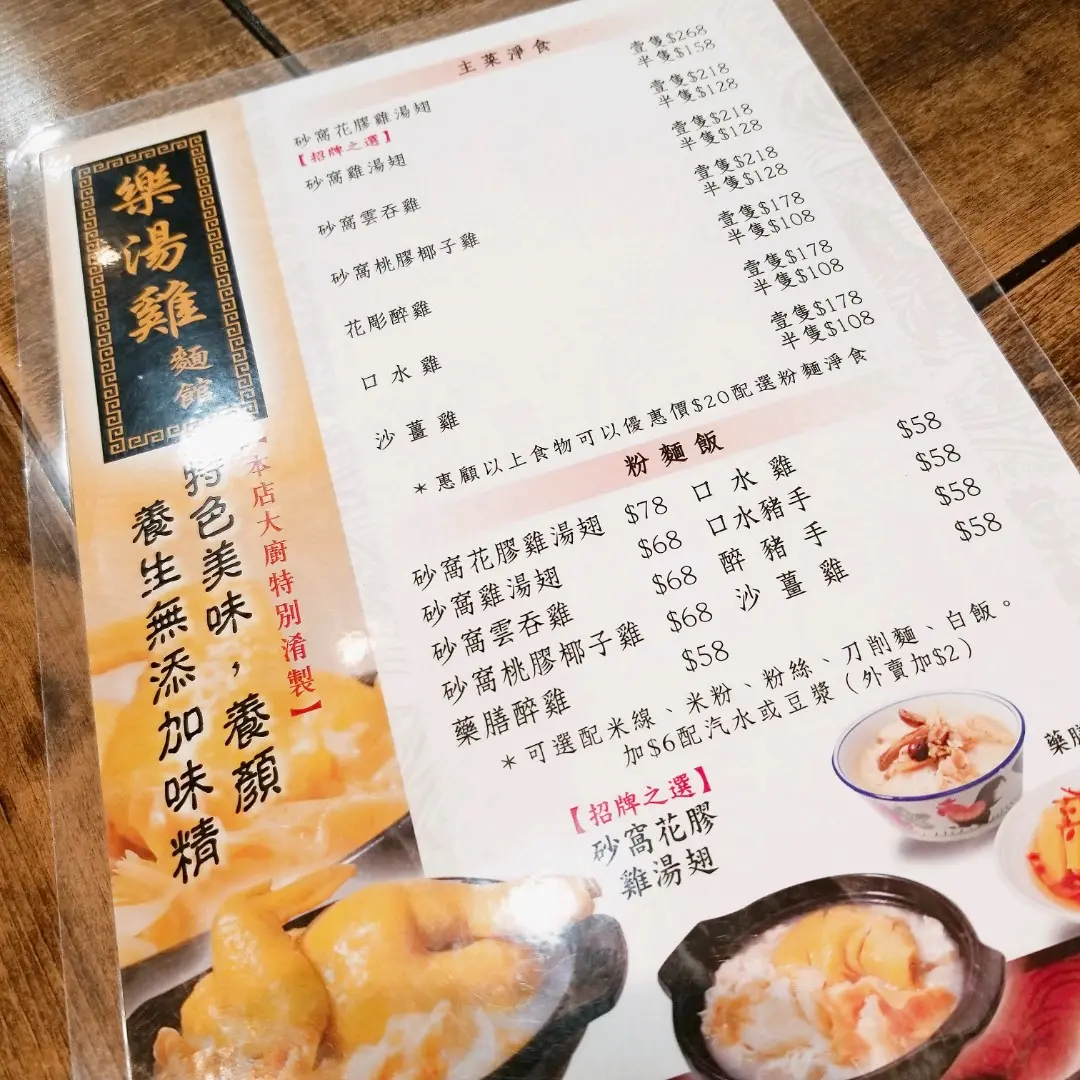 樂湯雞
麵館
【本店大廚特別淆製】
特色美味，養顏
養生無添加味精
主菜淨食
砂窩花膠雞湯翅 壹隻$268
【招牌之選】 半隻$158
砂窩雞湯翅 壹隻$218
半隻$128
砂窩雲吞雞 壹隻$218
半隻$128
砂窩桃膠椰子雞 壹隻$218
半隻$128
花彫醉雞 壹隻$178
半隻$108
口水雞 壹隻$178
半隻$108
沙薑雞 壹隻$178
半隻$108
*惠顧以上食物可以優惠價$20配選粉麵淨食
粉麵飯
砂窩花膠雞湯翅 $78 口水雞 $58
砂窩雞湯翅 $68 口水豬手 $58
砂窩雲吞雞 $68 醉豬手 $58
砂窩桃膠椰子雞 $68 沙薑雞 $58
藥膳醉雞 $58
*可選配米線、米粉、粉絲、刀削麵、白飯。
加$6配汽水或豆漿（外賣加$2）
【招牌之選】
砂窩花膠
雞湯翅
藥膳